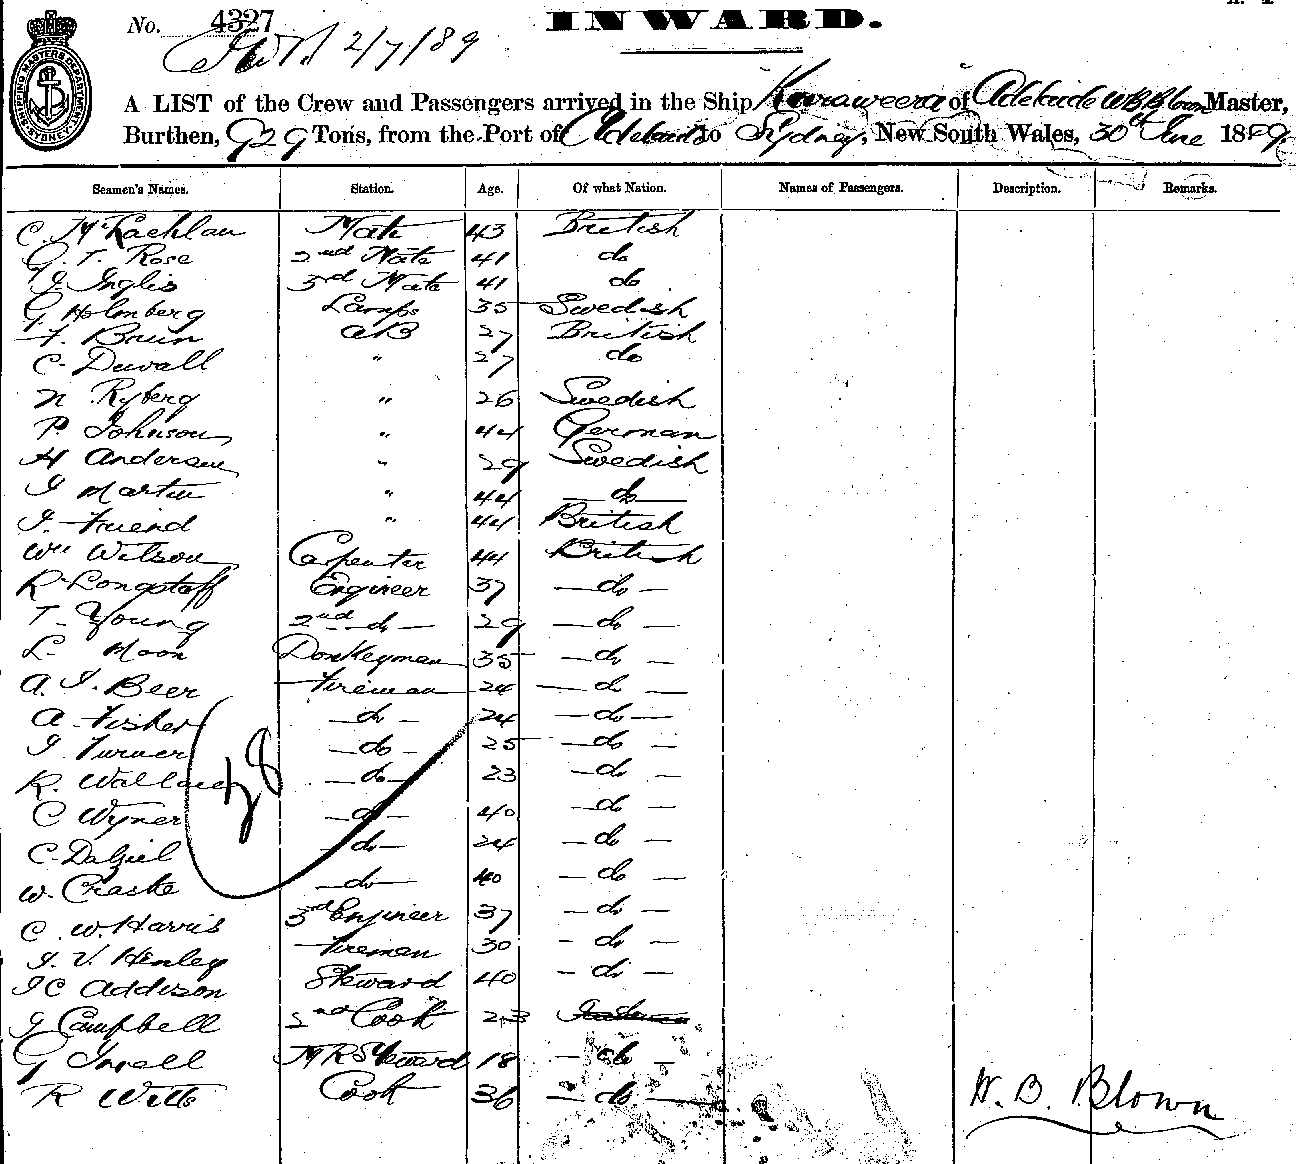 No. 4327
INWARD.
2/7/89
A LIST of the Crew and Passengers arrived in the Ship Kooraweera of Adelaide W B Blown Master,
Burthen, 929 Tons, from the Port of Adelaide to Sydney, New South Wales, 30th June 1889
Seamen's Names. Station. Age. Of what Nation. Names of Passengers. Description. Remarks.
C. McLachlan Mate 43 British
G. T. Rose 2nd Mate 41 do
J. Inglis 3rd Mate 41 do
G. Holmberg Lamps 35 Swedish
F. Brun AB 27 British
C. Duvall " 27 do
N Ryberg " 26 Swedish
P. Johnson " 44 German
H Andersen " 29 Swedish
J Martin " 44 — do —
J. Friend " 44 British
Wm Wilson Carpenter 44 British
R Longstaff Engineer 37 — do —
T. Young 2nd do — 29 — do —
L. Moon Donkeyman 35 — do —
A. J. Beer Fireman 24 — do —
A Fisher — do — 24 — do —
J Turner — do — 25 — do —
R. Wallace — do — 23 — do —
C Wyner — do — 40 — do —
C. Dalziel — do — 24 — do —
W. Craske — do — 40 — do —
C. W. Harris 3rd Engineer 37 — do —
J. V. Henley Fireman 30 — do —
J C Addison Steward 40 — do —
J Campbell 2nd Cook 23
G Insell M R Steward 18 — do —
R Witt Cook 36 — do —
28
W. B. Blown